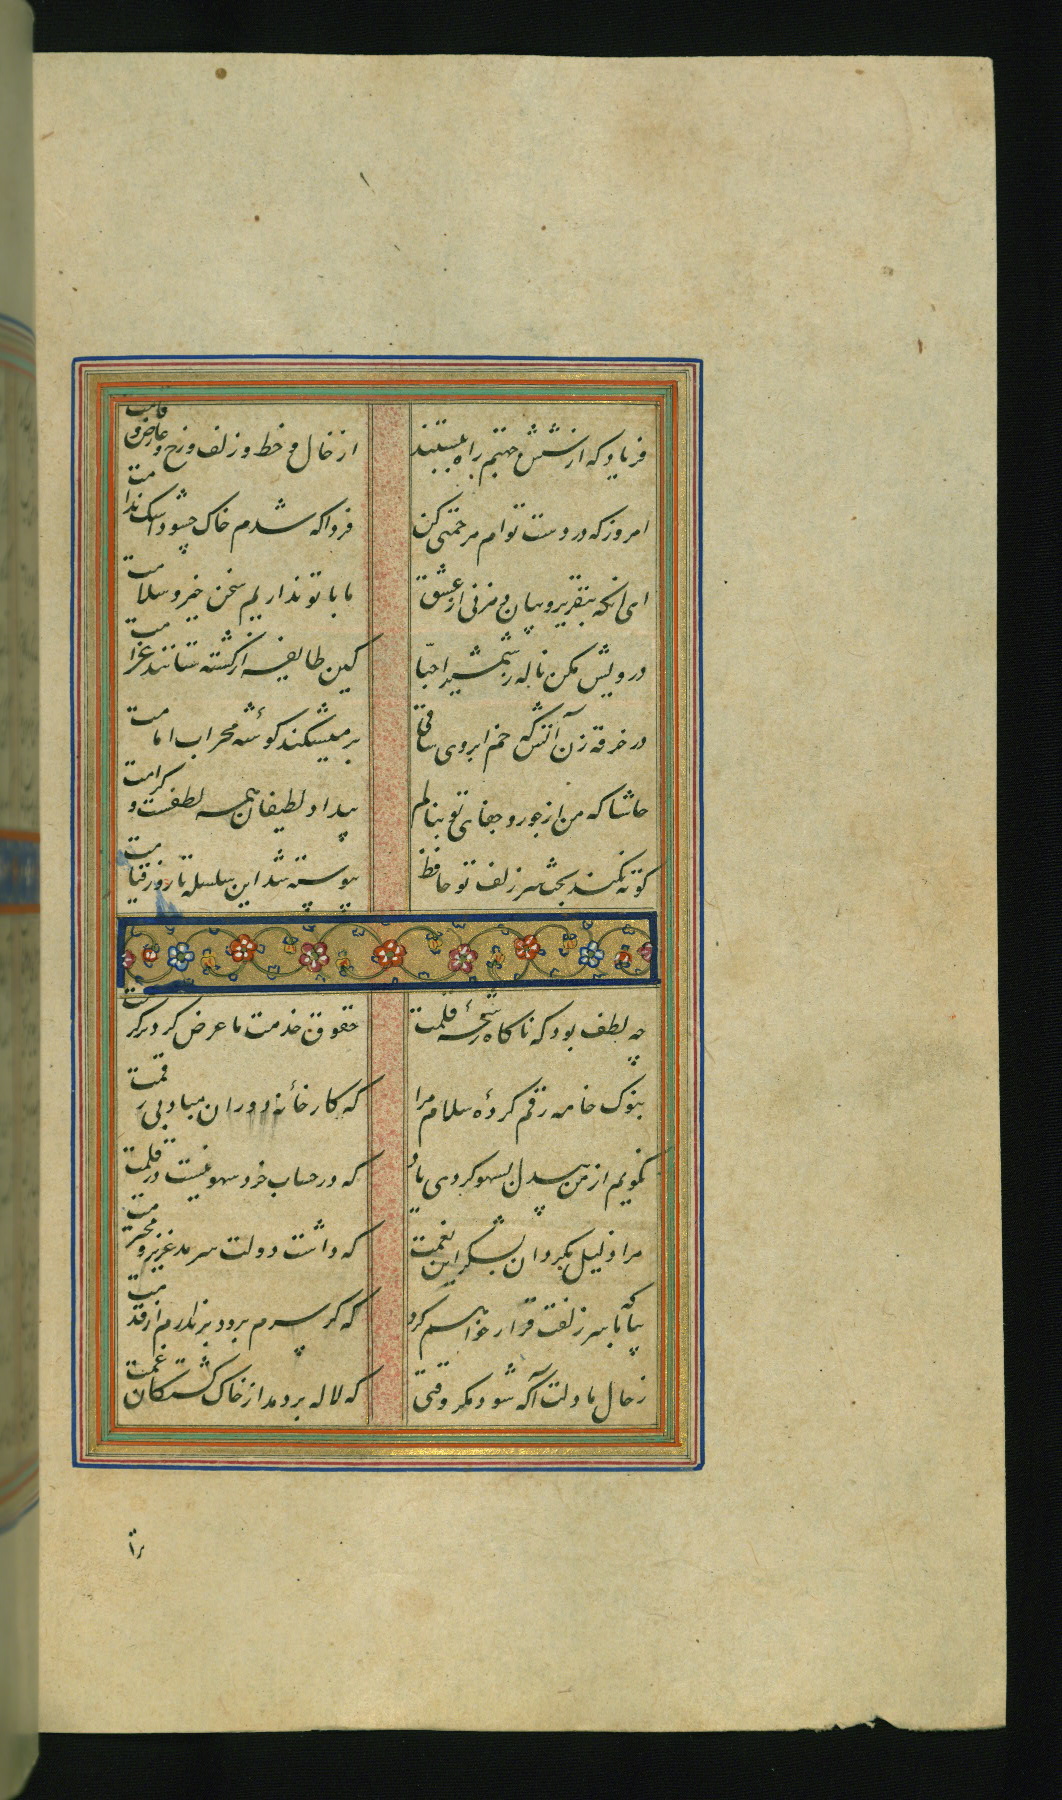 فریاد که از شش جهتم راه ببستند از خال و خط و زلف و رخ و عارض و قامت
امروز که در دست توام مرحمتی کن فردا که شدم خاک چه سود اشک ندامت
ای آنکه بتقریر و بیان دم زنی از عشق ما با تو نداریم سخن خیر و سلامت
درویش مکن ناله ز شمشیر احبا کین طایفه از کشته ستانند غرامت
در خرقه زن آتش که خم ابروی ساقی بر میشکند کوشهٔ محراب امامت
حاشا که من از جور و جفای تو بنالم بیداد لطیفان همه لطفست و کرامت
کوته نکند بحث سر زلف تو حافظ پیوسته شد این سلسله تا روز قیامت
چه لطف بود که ناکاه رشحهٔ قلمت حقوق خدمت ما عرض کرد بر کرمت
بنوک خامه رقم کردهٔ سلام مرا که کارخانهٔ دوران مباد بی رقمت
نکویم از من بیدل بسهو کردی یاد که در حساب خرد سهو نیست در قلمت
مرا ذلیل مکردان بشکر این نعمت که داشت دولت سرمد عزیز و محترمت
بیا که با سر زلفت قرار خواهم کرد که کر سرم برود بر ندارم از قدمت
ز حال ما دلت آکه شود مکر وقتی که لاله بردمد از خاک کشتکان غمت